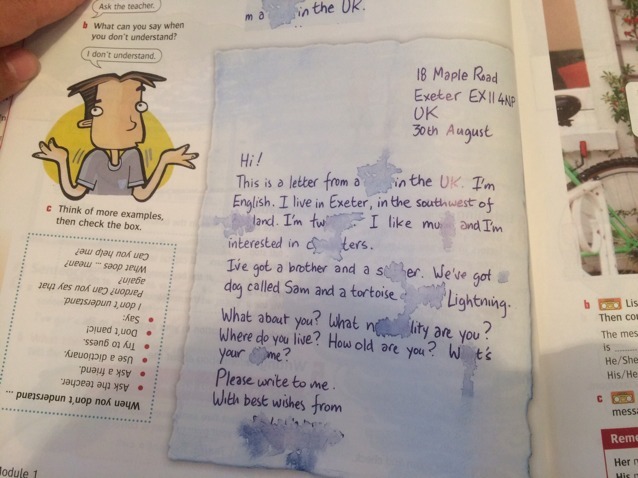 Ask the teacher.
b What can you say when
you don't understand?
I don't understand.
c Think of more examples,
then check the box.
When you don't understand ...
• Ask the teacher.
• Ask a friend.
• Use a dictionary.
• Try to guess.
• Don't panic!
• Say:
I don't understand.
Pardon? Can you say that
again?
What does ... mean?
Can you help me?
odule 1
m a in the UK.
18 Maple Road
Exeter EX11 4NP
UK
30th August
Hi!
This is a letter from a in the UK. I'm
English. I live in Exeter, in the southwest of
land. I'm tw . I like mu and I'm
interested in c ters.
I've got a brother and a s er. We've got
dog called Sam and a tortoise Lightning.
What about you? What n lity are you?
Where do you live? How old are you? W t's
your me?
Please write to me.
With best wishes from
b Lis
Then co
The mes
is
He/She
His/He
c
messa
Reme
Her n
His n